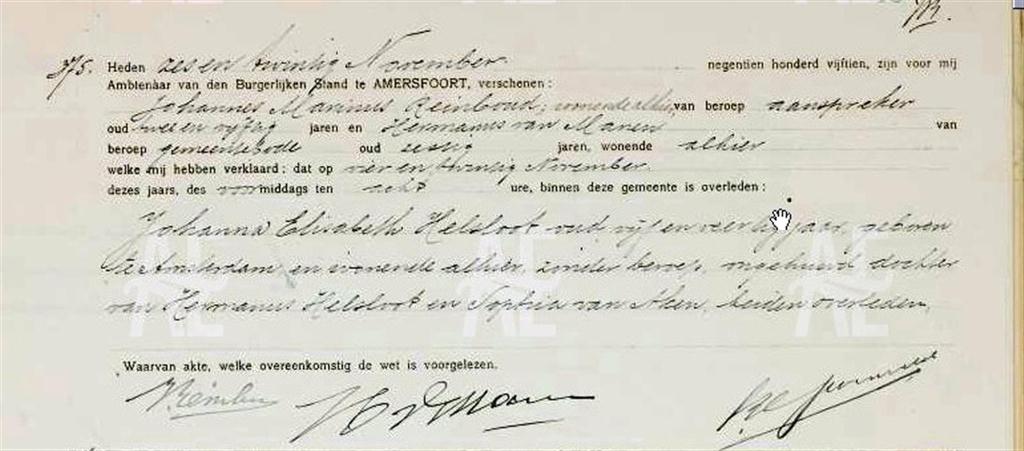 375. Heden zes en twintig November negentien honderd vijftien, zijn voor mij
Ambtenaar van den Burgerlijken Stand te AMERSFOORT, verschenen:
Johannes Marinus Reinboud, wonende alhier, van beroep aanspreker
oud twee en vijftig jaren en Hermanus van Maren van
beroep gemeentebode oud zestig jaren, wonende alhier
welke mij hebben verklaard: dat op vier en twintig November
dezes jaars, des voormiddags ten acht ure, binnen deze gemeente is overleden:
Johanna Elisabeth Helsloot oud vijf en veertig jaar, geboren
te Amsterdam en wonende alhier, zonder beroep, ongehuwd dochter
van Hermanus Helsloot en Sophia van Aken, beiden overleden.
Waarvan akte, welke overeenkomstig de wet is voorgelezen.